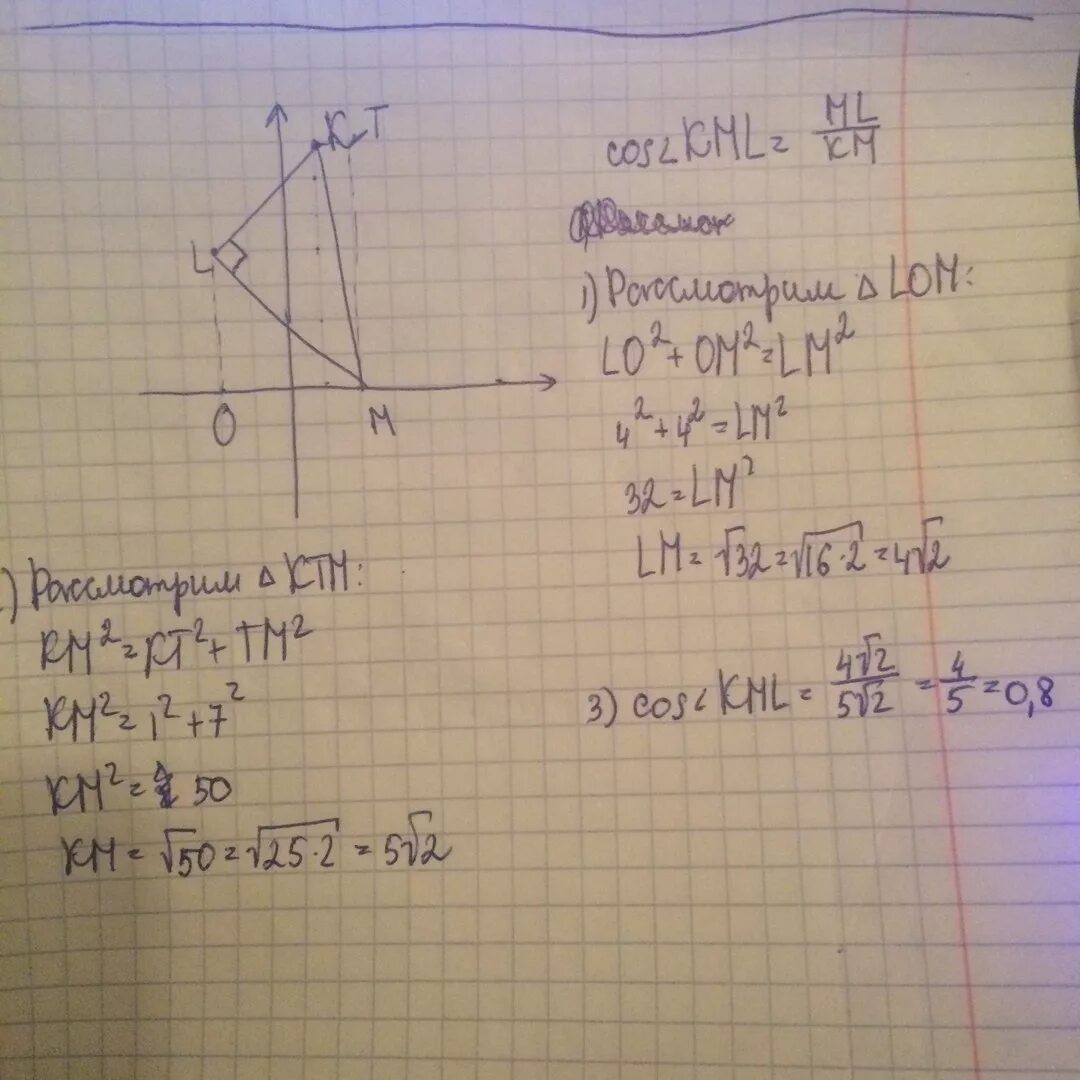 K T
L
O
M
cos∠KML = ML/KM
1) Рассмотрим △ LOM:
LO² + OM² = LM²
4² + 4² = LM²
32 = LM²
LM = √32 = √16·2 = 4√2
) Рассмотрим △ KTM:
KM² = KT² + TM²
KM² = 1² + 7²
KM² = 50
KM = √50 = √25·2 = 5√2
3) cos∠KML = 4√2/5√2 = 4/5 = 0,8